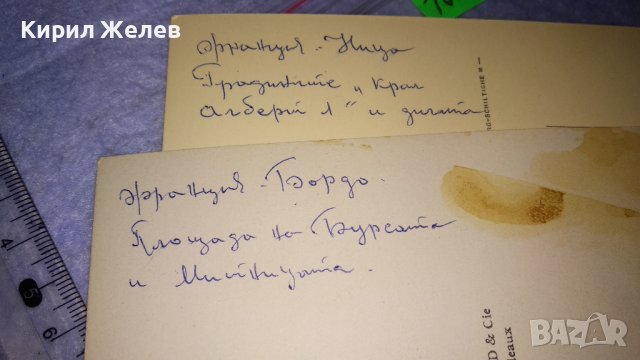 Кирил Желев
Франция - Ница
Градините "Крал
Алберт 1" и дигата
RG-SCHILTIGHEIM
Франция - Бордо.
Площада на Бурсата
и Митницата.
D & Cie
deaux
4
5
6
BAZAR
.bg